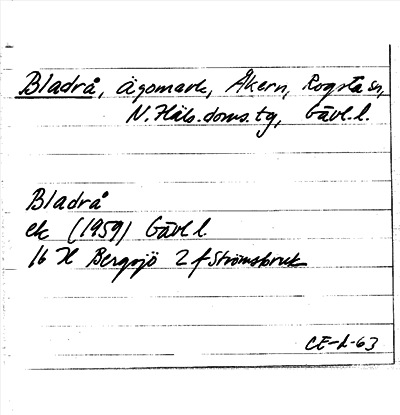 Bladrå, ägomark, Åkern, Rogsta sn,
N. Häls. doms. tg, Gävl. l.
Bladrå
ek (1959) Gävl l
16 H Bergsjö 2 f Strömsbruk
CE-L-63